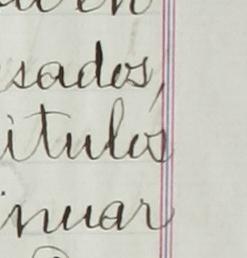 sados,
itulos
inuar